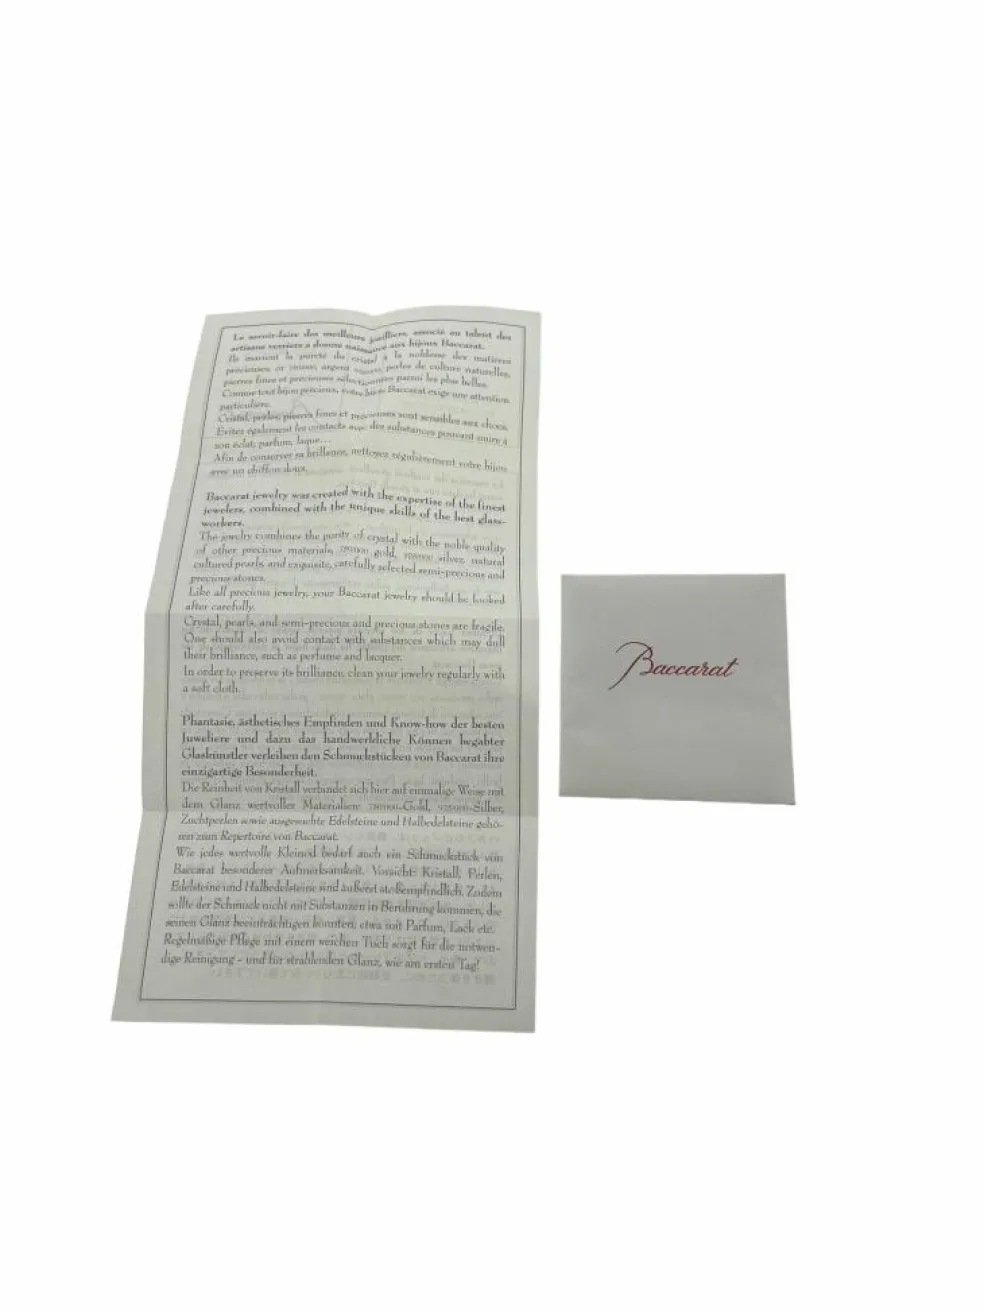 Le savoir-faire des meilleurs joailliers, associé au talent des
artisans verriers a donné naissance aux bijoux Baccarat.
Ils marient la pureté du cristal à la noblesse des matières
précieuses, or 750/000, argent 925/000, perles de culture naturelles,
pierres fines et précieuses sélectionnées parmi les plus belles.
Comme tout bijou précieux, votre bijou Baccarat exige une attention
particulière.
Cristal, perles, pierres fines et précieuses sont sensibles aux chocs.
Evitez également les contacts avec des substances pouvant nuire à
son éclat, parfum, laque...
Afin de conserver sa brillance, nettoyez régulièrement votre bijou
avec un chiffon doux.
Baccarat jewelry was created with the expertise of the finest
jewelers, combined with the unique skills of the best glass-
workers.
The jewelry combines the purity of crystal with the noble quality
of other precious materials, 750/000 gold, 925/000 silver, natural
cultured pearls, and exquisite, carefully selected semi-precious and
precious stones.
Like all precious jewelry, your Baccarat jewelry should be looked
after carefully.
Crystal, pearls, and semi-precious and precious stones are fragile.
One should also avoid contact with substances which may dull
their brilliance, such as perfume and lacquer.
In order to preserve its brilliance, clean your jewelry regularly with
a soft cloth.
Phantasie, ästhetisches Empfinden und Know-how der besten
Juweliere und dazu das handwerkliche Können begabter
Glaskünstler verleihen den Schmuckstücken von Baccarat ihre
einzigartige Besonderheit.
Die Reinheit von Kristall verbindet sich hier auf einmalige Weise mit
dem Glanz wertvoller Materialien: 750/000-Gold, 925/000-Silber,
Zuchtperlen sowie ausgesuchte Edelsteine und Halbedelsteine gehö-
ren zum Repertoire von Baccarat.
Wie jedes wertvolle Kleinod bedarf auch ein Schmuckstück von
Baccarat besonderer Aufmerksamkeit. Vorsicht: Kristall, Perlen,
Edelsteine und Halbedelsteine sind äußerst stoßempfindlich. Zudem
sollte der Schmuck nicht mit Substanzen in Berührung kommen, die
seinen Glanz beeinträchtigen könnten, etwa mit Parfum, Lack etc.
Regelmäßige Pflege mit einem weichen Tuch sorgt für die notwen-
dige Reinigung - und für strahlenden Glanz, wie am ersten Tag!
Baccarat